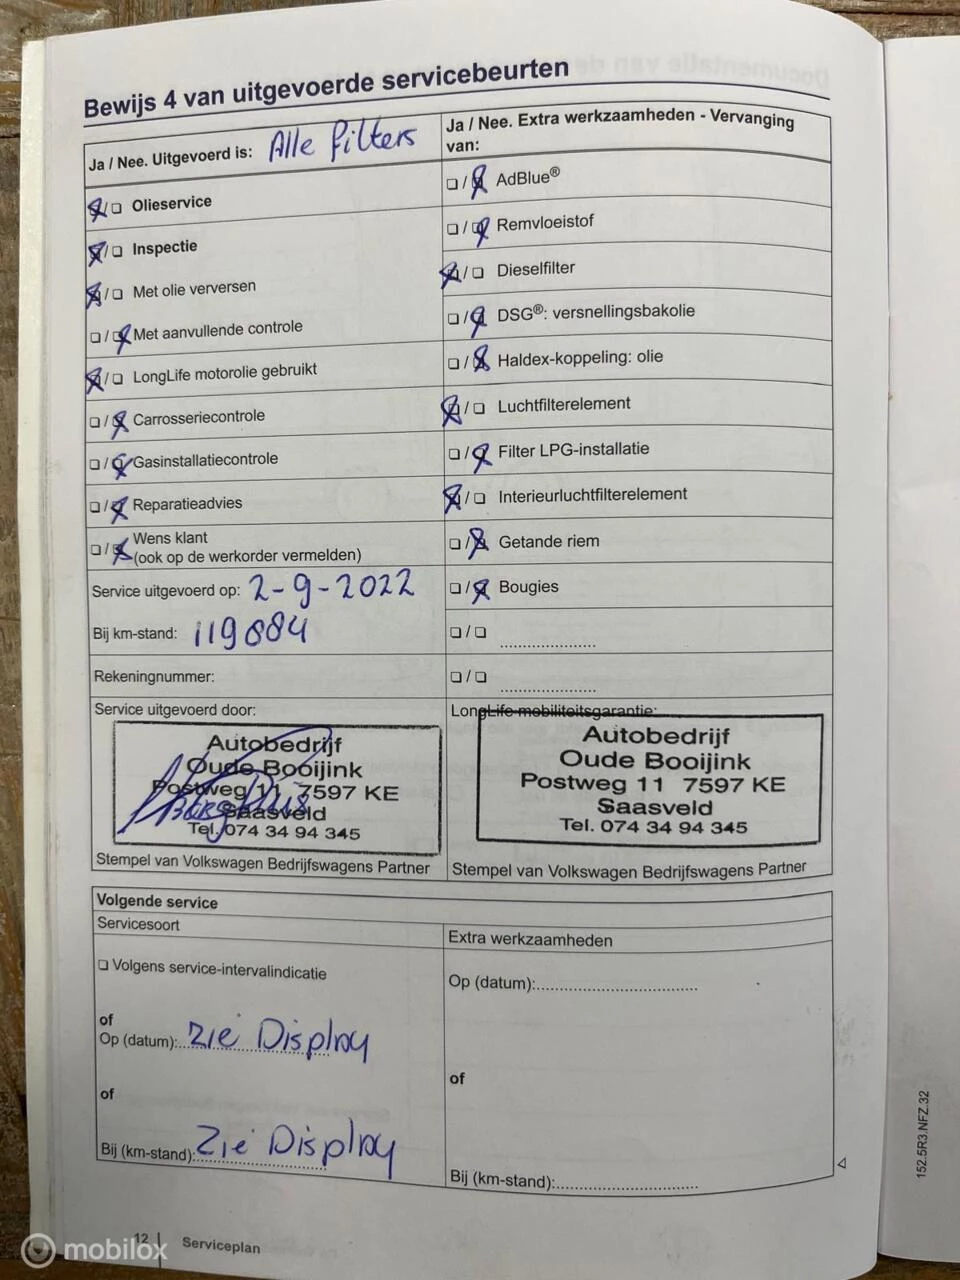 Bewijs 4 van uitgevoerde servicebeurten
Ja / Nee. Uitgevoerd is: Alle filters
Olieservice
Inspectie
Met olie verversen
Met aanvullende controle
LongLife motorolie gebruikt
Carrosseriecontrole
Gasinstallatiecontrole
Reparatieadvies
Wens klant
(ook op de werkorder vermelden)
Service uitgevoerd op: 2-9-2022
Bij km-stand: 119884
Rekeningnummer:
Service uitgevoerd door:
Autobedrijf
Oude Booijink
Postweg 11 7597 KE
Saasveld
Tel. 074 34 94 345
Stempel van Volkswagen Bedrijfswagens Partner
Ja / Nee. Extra werkzaamheden - Vervanging
van:
AdBlue®
Remvloeistof
Dieselfilter
DSG®: versnellingsbakolie
Haldex-koppeling: olie
Luchtfilterelement
Filter LPG-installatie
Interieurluchtfilterelement
Getande riem
Bougies
LongLife-mobiliteitsgarantie:
Autobedrijf
Oude Booijink
Postweg 11 7597 KE
Saasveld
Tel. 074 34 94 345
Stempel van Volkswagen Bedrijfswagens Partner
Volgende service
Servicesoort
Volgens service-intervalindicatie
of
Op (datum): zie Display
of
Bij (km-stand): zie Display
Extra werkzaamheden
Op (datum):
of
Bij (km-stand):
152.5R3.NFZ.32
12 Serviceplan
mobilox